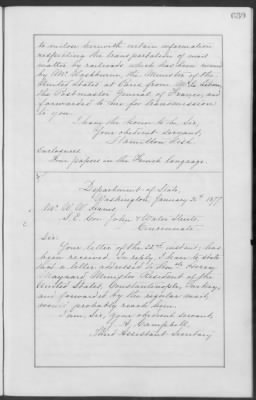 639
to enclose herewith certain information
respecting the transportation of mail
matter by railroads which has been received
by Mr. Washburne, the Minister of the
United States at Paris from Mr. Le Libon
the Postmaster General of France, and
forwarded to me for transmission
to you.
I have the honor to be, Sir,
Your obedient servant,
Hamilton Fish.
Enclosures.
Four papers in the French language.
Department of State,
Washington, January 30th 1877.
Mr. W. W.
S. E. Cor. John & Water Streets,
Cincinnati.
Sir:
Your letter of the 25th instant, has
been received. In reply, I have to state
that a letter addressed to Hon. Horace
Maynard Minister Resident of the
United States, Constantinople, Turkey,
and forwarded by the regular mail,
would probably reach him.
I am, Sir, your obedient servant,
A. Campbell,
Third Assistant Secretary